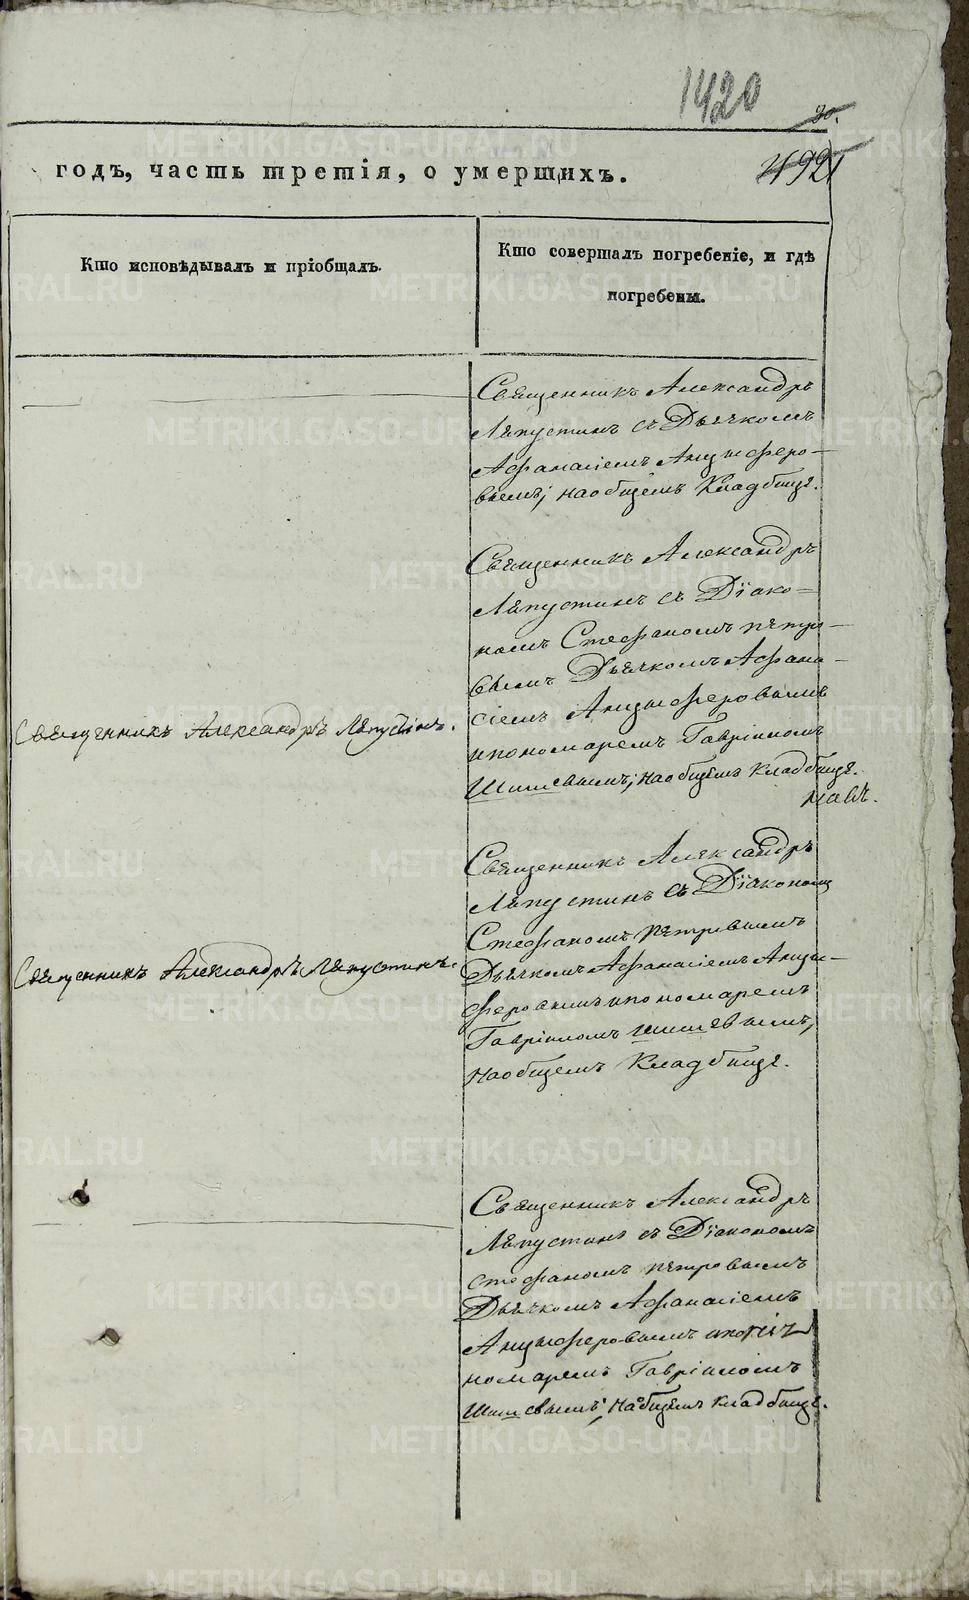 1420
20.
492
годъ, часть третія, о умершихъ.
Кто исповѣдывалъ и пріобщалъ.
Кто совершалъ погребеніе, и гдѣ
погребены.
Священникъ Александръ
Ляпустинъ съ Дьячкомъ
Афанасіемъ Анцыферо-
вымъ, на общемъ Кладбище.
Священникъ Александръ
Ляпустинъ съ Діако-
номъ Стефаномъ Петро-
вымъ Дьячкомъ Афана-
сіемъ Анцыферовымъ
Священникъ Александръ Ляпустинъ.
ипономаремъ Гавріиломъ
Шишевымъ, на общемъ кладбище.
Священникъ Александръ
Ляпустинъ съ Діакономъ
Стефаномъ Петровымъ
Священникъ Александръ Ляпустинъ.
Дьячкомъ Афанасіемъ Анцы-
феровымъ ипономаремъ
Гавріиломъ Шишевымъ,
на общемъ Кладбище.
Священникъ Александръ
Ляпустинъ съ Діакономъ
Стефаномъ Петровымъ
Дьячкомъ Афанасіемъ
Анцыферовымъ
номаремъ Гавріиломъ
Шишевымъ, на общемъ кладбище.
METRIKI.GASO-URAL.RU